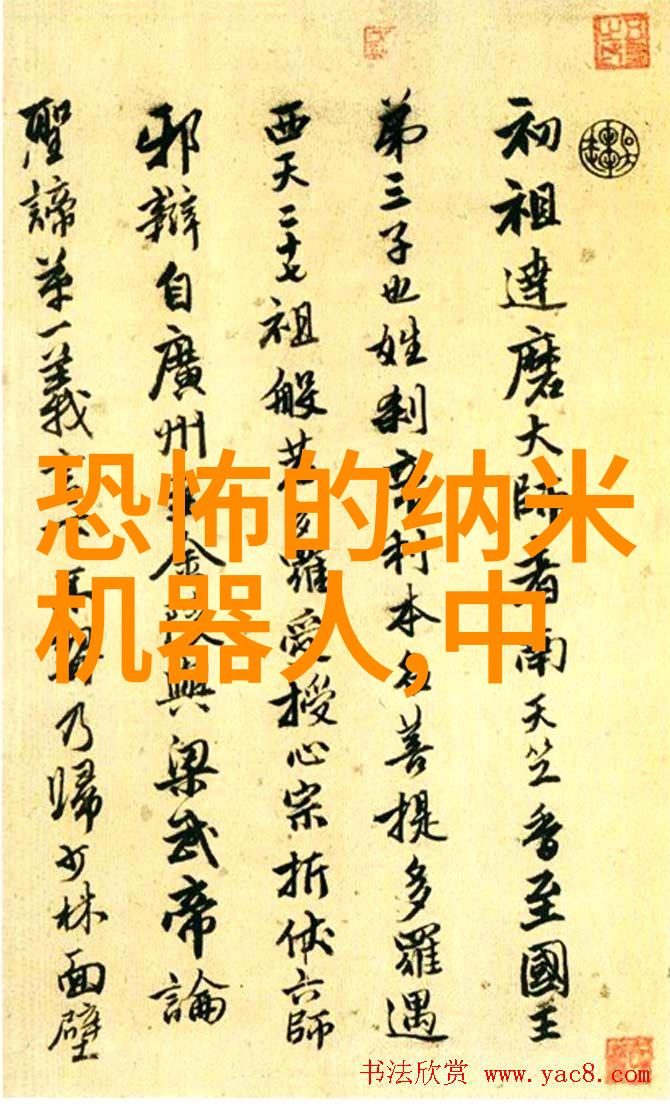 初祖達磨大師者南天竺香至國王
第三子也姓刹帝利本名菩提多羅遇
西天二十七祖般若多羅受授心宗折伏六師
邪辯自廣州至金陵與梁武帝論
聖諦第一義乃歸少林面壁
恐怖的纳米
机器人,中
书法欣赏 www.yac8.com